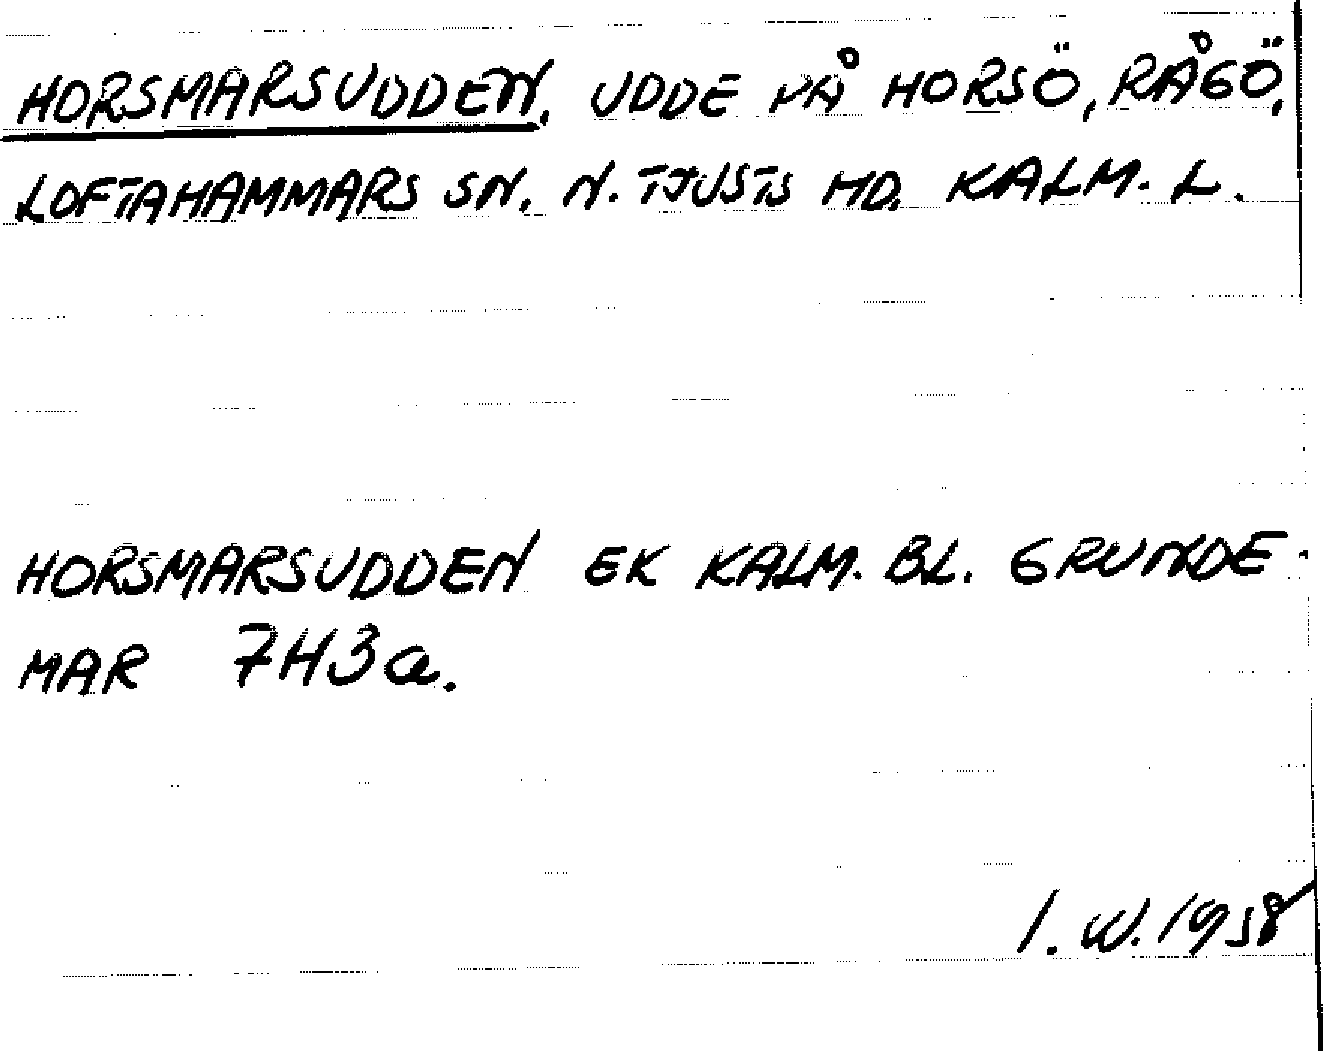 HORSMARSUDDEN, UDDE PÅ HORSÖ, RÅGÖ,
LOFTAHAMMARS SN. N. TJUSTS HD. KALM. L.
HORSMARSUDDEN EK KALM. BL. GRUNDE-
MAR 7H3a.
I. W. 1958